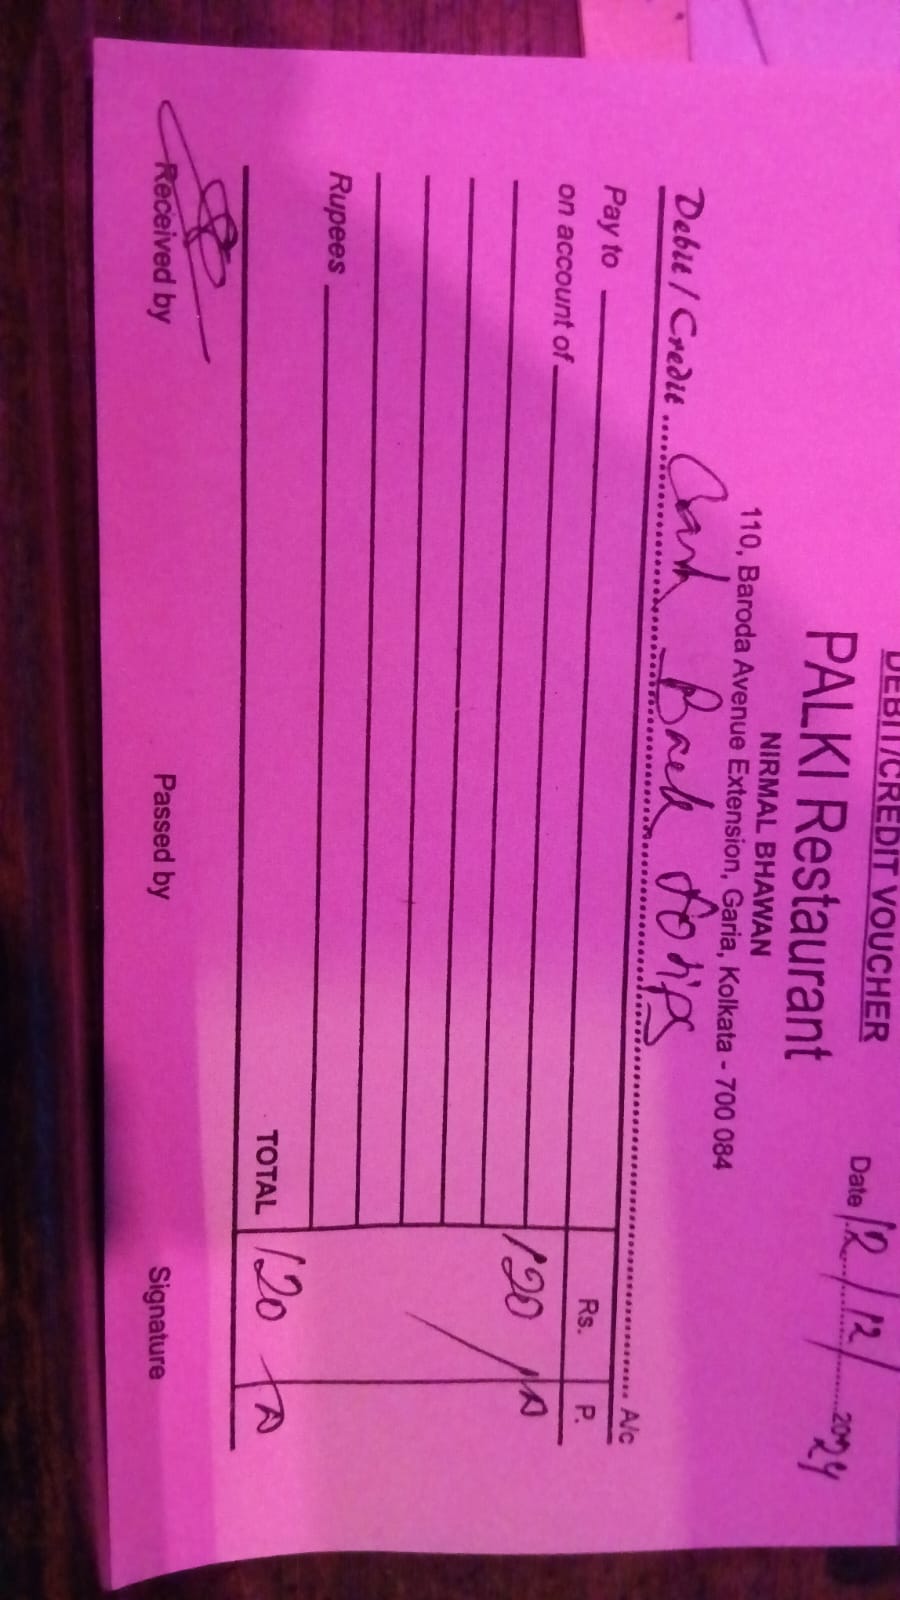 DEBIT/CREDIT VOUCHER
PALKI Restaurant
NIRMAL BHAWAN
110, Baroda Avenue Extension, Garia, Kolkata - 700 084
Date 12/12/2024
Debit / Credit Cash Back to tips A/c
Pay to
Rs. P.
on account of
120/
Rupees
TOTAL 120
Received by Passed by Signature